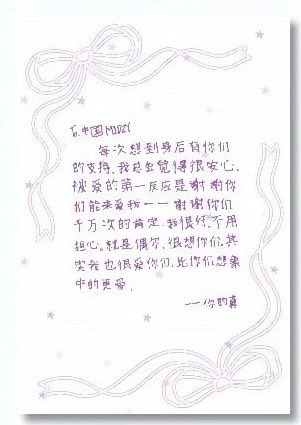 To.中国MIDZY
每次想到身后有你们
的支持,我总会觉得很安心,
被爱的第一反应是谢谢你
们能来爱我——谢谢你们
千万次的肯定.我很好,不用
担心.就是偶尔,很想你们,其
实我也很爱你们,比你们想象
中的更爱.
——你的真